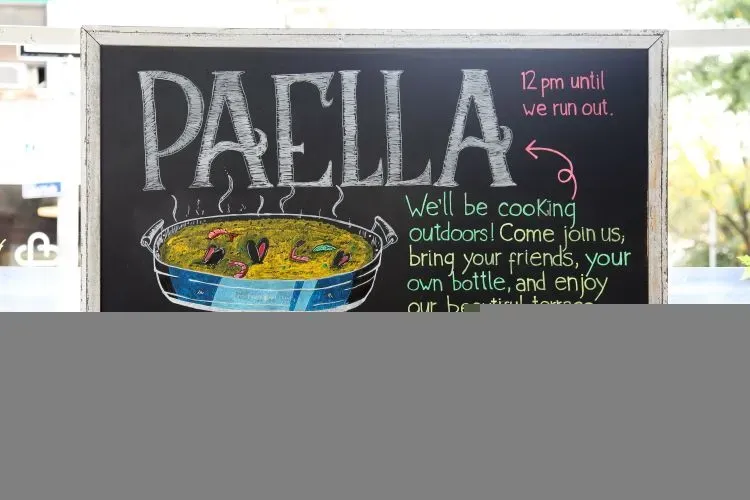 PAELLA
12 pm until
we run out.
We'll be cooking
outdoors! Come join us,
bring your friends, your
own bottle, and enjoy
our beautiful terrace